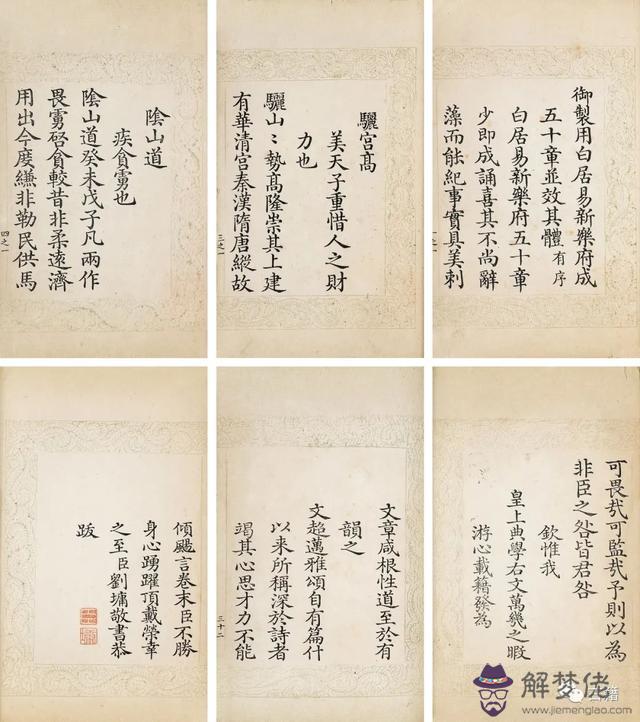 御製用白居易新樂府成
五十章並效其體有序
白居易新樂府五十章
少即成誦喜其不尚辭
藻而能紀事實具美刺
驪宮髙
美天子重惜人之財
力也
驪山〻勢髙隆崇其上建
有華清宮秦漢隋唐縱故
三之一
陰山道
疾貪虜也
陰山道癸未戊子凡兩作
畏虜啓貪較昔非柔逺濟
用出今度縑非勒民供馬
四之一
可畏哉可監哉予則以為
非臣之咎皆君咎
欽惟我
皇上典學右文萬幾之暇
游心載籍發為
文章咸根性道至於有
韻之
文超邁雅頌自有篇什
以来所稱深於詩者
竭其心思才力不能
三十二
傾颺言卷末臣不勝
身心踴躍頂戴榮幸
之至臣劉墉敬書恭
跋
解梦佬
www.jiemenglao.com